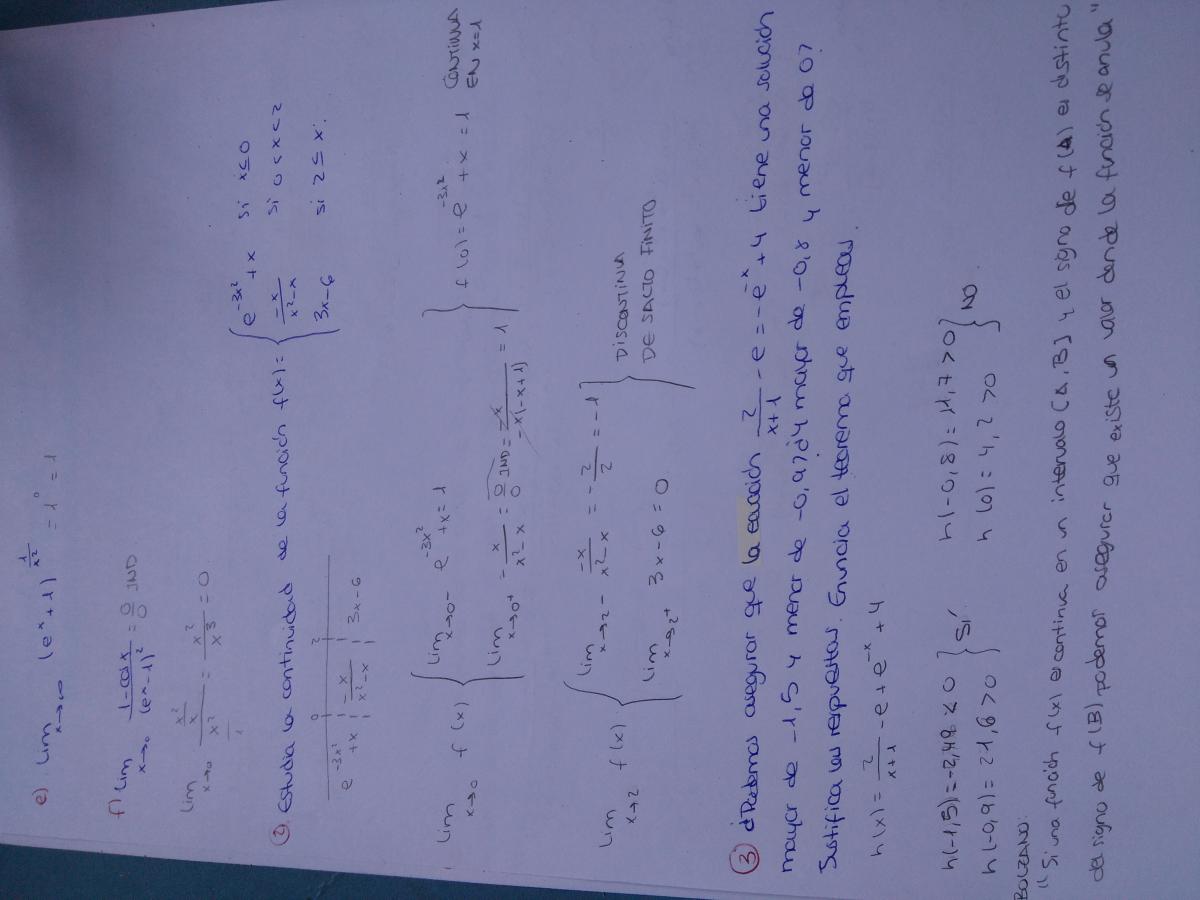 e) lim x→∞ (e^x + 1)^(1/x²) = 1⁰ = 1
f) lim x→0 (1-cos x)/(e^x - 1)² = 0/0 IND
lim x→0 (x²/x)/x² = x²/x³ = 0
② Estudia la continuidad de la función f(x) = { e^(-3x²) + x si x ≤ 0
-x/(x²-x) si 0 < x < 2
3x-6 si 2 ≤ x.
0 2
e^(-3x²) + x | -x/(x²-x) | 3x-6
lim x→0 f(x) { lim x→0⁻ e^(-3x²) + x = 1
lim x→0⁺ -x/(x²-x) = 0/0 IND = -x/-x(-x+1) = 1 } f(0) = e^(-3x²) + x = 1 CONTINUA
EN x=1
lim x→2 f(x) { lim x→2⁻ -x/(x²-x) = -2/2 = -1
lim x→2⁺ 3x-6 = 0 } DISCONTINUA
DE SALTO FINITO
③ ¿Podemos asegurar que la ecuación 2/(x+1) - e = -e^(-x) + 4 tiene una solución
mayor de -1,5 y menor de -0,9? ¿Y mayor de -0,8 y menor de 0?
Justifica las respuestas. Enuncia el teorema que empleas.
h(x) = 2/(x+1) - e + e^(-x) + 4
h(-1,5) = -2,48 < 0 } SI h(-0,8) = 11,7 > 0 } NO
h(-0,9) = 21,6 > 0 h(0) = 4,2 > 0
BOLZANO:
"Si una función f(x) es continua en un intervalo [A,B] y el signo de f(A) es distinto
del signo de f(B) podemos asegurar que existe un valor donde la función se anula"